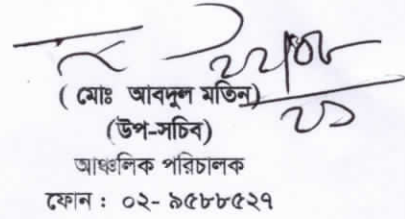 ( মোঃ আবদুল মতিন)
(উপ-সচিব)
আঞ্চলিক পরিচালক
ফোন : ০২- ৯৫৮৮৫২৭